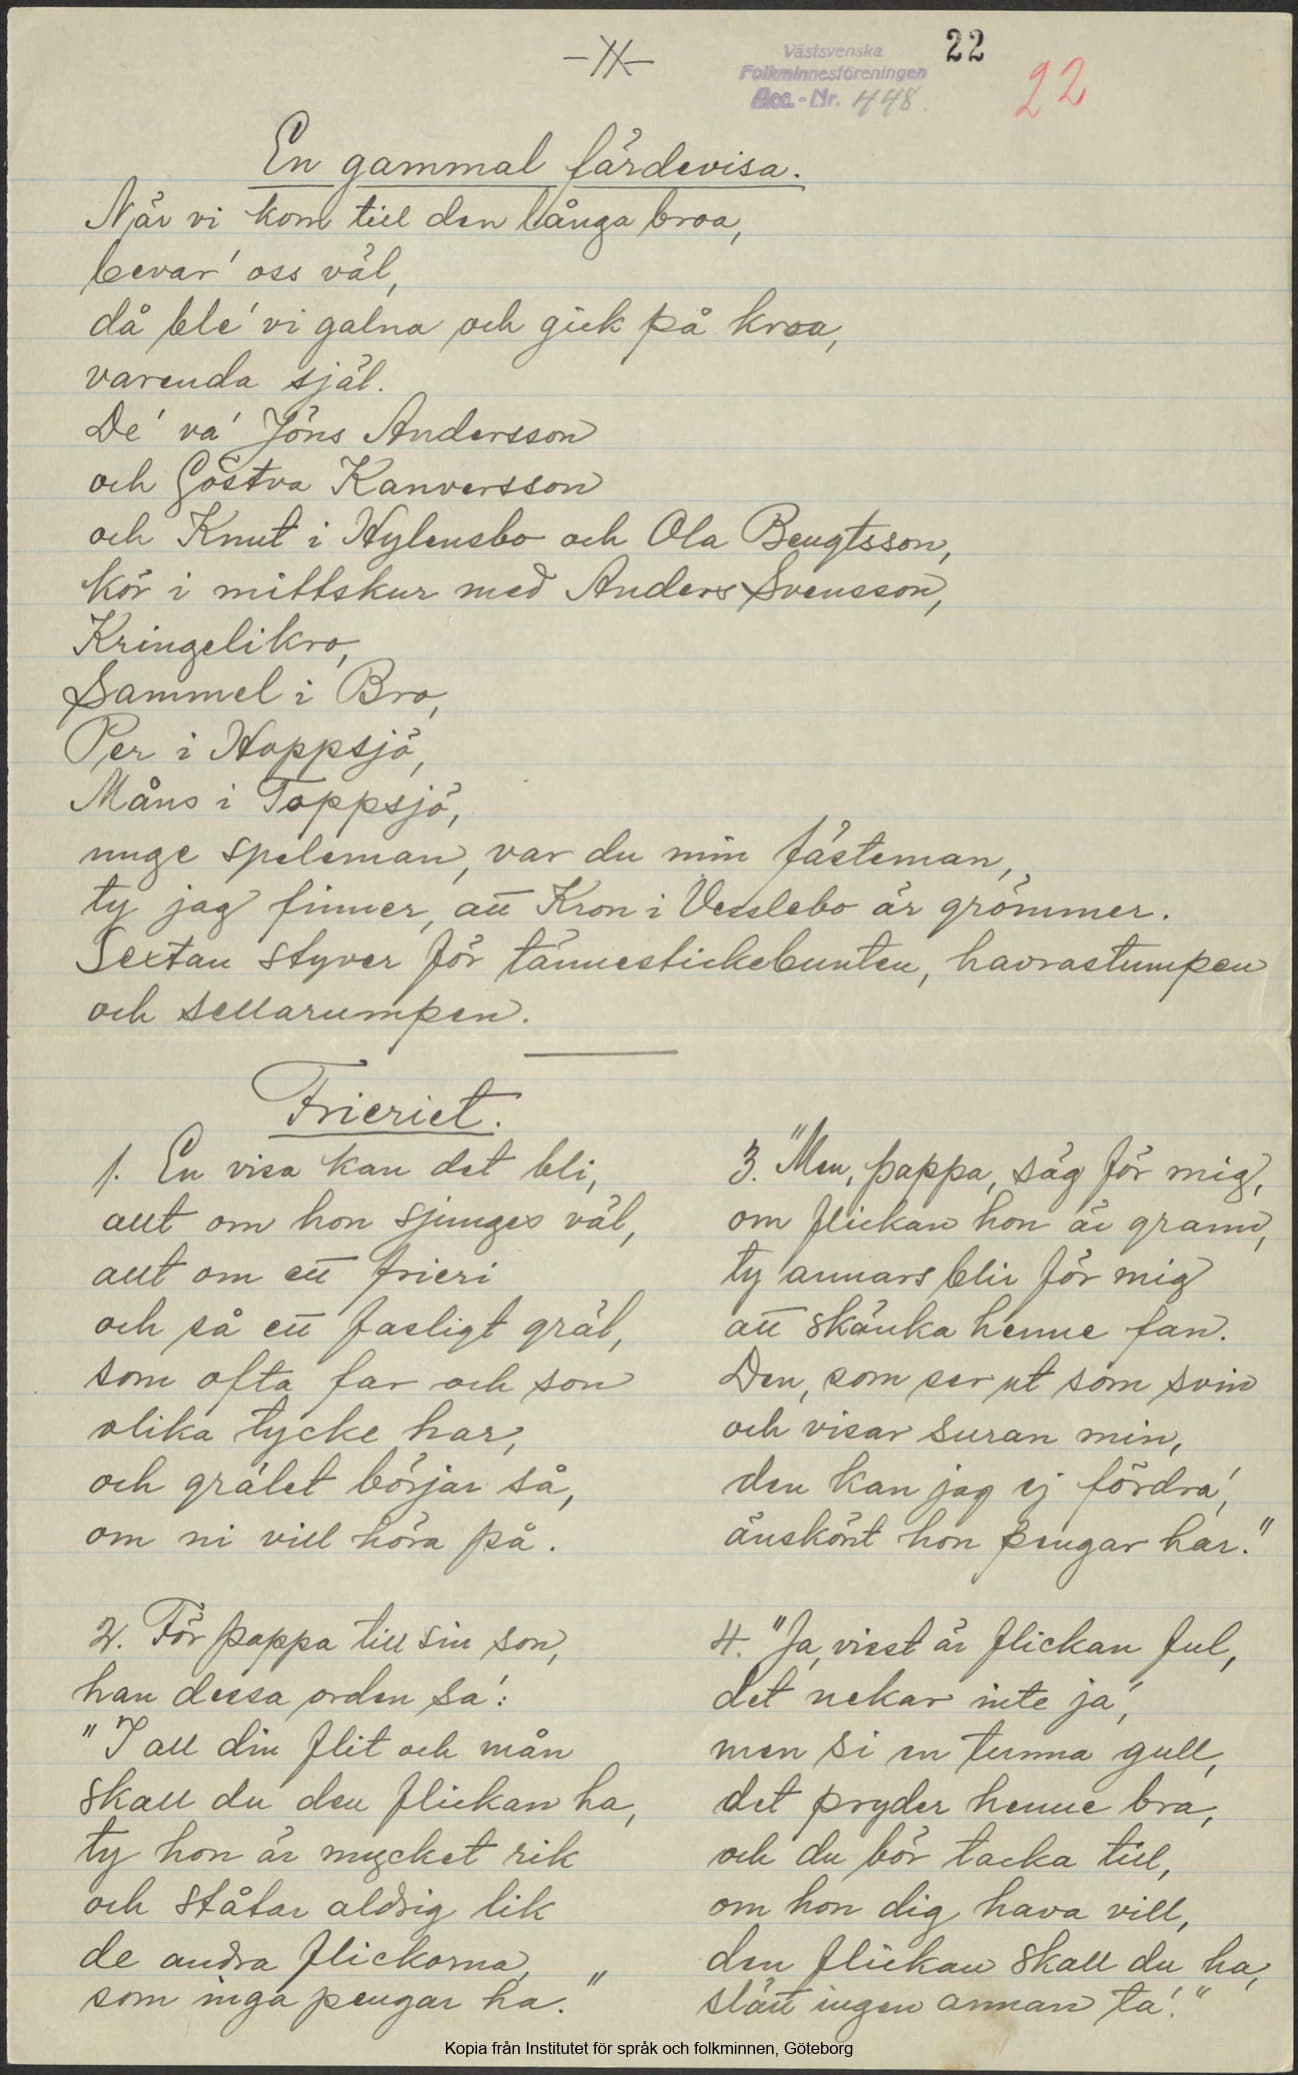 -II-
Västsvenska
Folkminnesföreningen
Acc.-Nr. 448.
22
22
En gammal färdevisa.
När vi kom till den långa broa,
bevar' oss väl,
då ble' vi galna och gick på kroa,
varenda själ.
De' va' Jöns Andersson
och Göstva Kanversson
och Knut i Hylensbo och Ola Bengtsson,
kör i mittskur med Anders Svensson,
Kringelikro,
Sammel i Bro,
Per i Hoppsjö,
Måns i Toppsjö,
unge speleman, var du min fästeman,
ty jag finner, att Kron i Vesslebo är grömmer.
Sextan styver för tännestickebunten, havrastumpen
och sellarumpen.
Frieriet.
1. En visa kan det bli,
allt om hon sjunges väl,
allt om ett frieri
och så ett fasligt gräl,
som ofta far och son
olika tycke har,
och grälet börjar så,
om ni vill höra på.
2. För pappa till sin son,
han dessa orden sa':
"I all din flit och mån
skall du den flickan ha,
ty hon är mycket rik
och ståtar aldrig lik
de andra flickorna,
som inga pengar ha."
3. "Men, pappa, säg för mig,
om flickan hon är grann,
ty annars blir för mig
att skänka henne fan.
Den, som ser ut som svin
och visar suran min,
den kan jag ej fördra',
änskönt hon pengar har."
4. "Ja, visst är flickan ful,
det nekar inte ja',
men si en tunna gull,
det pryder henne bra,
och du bör tacka till,
om hon dig hava vill,
den flickan skall du ha,
slätt ingen annan ta'."
Kopia från Institutet för språk och folkminnen, Göteborg